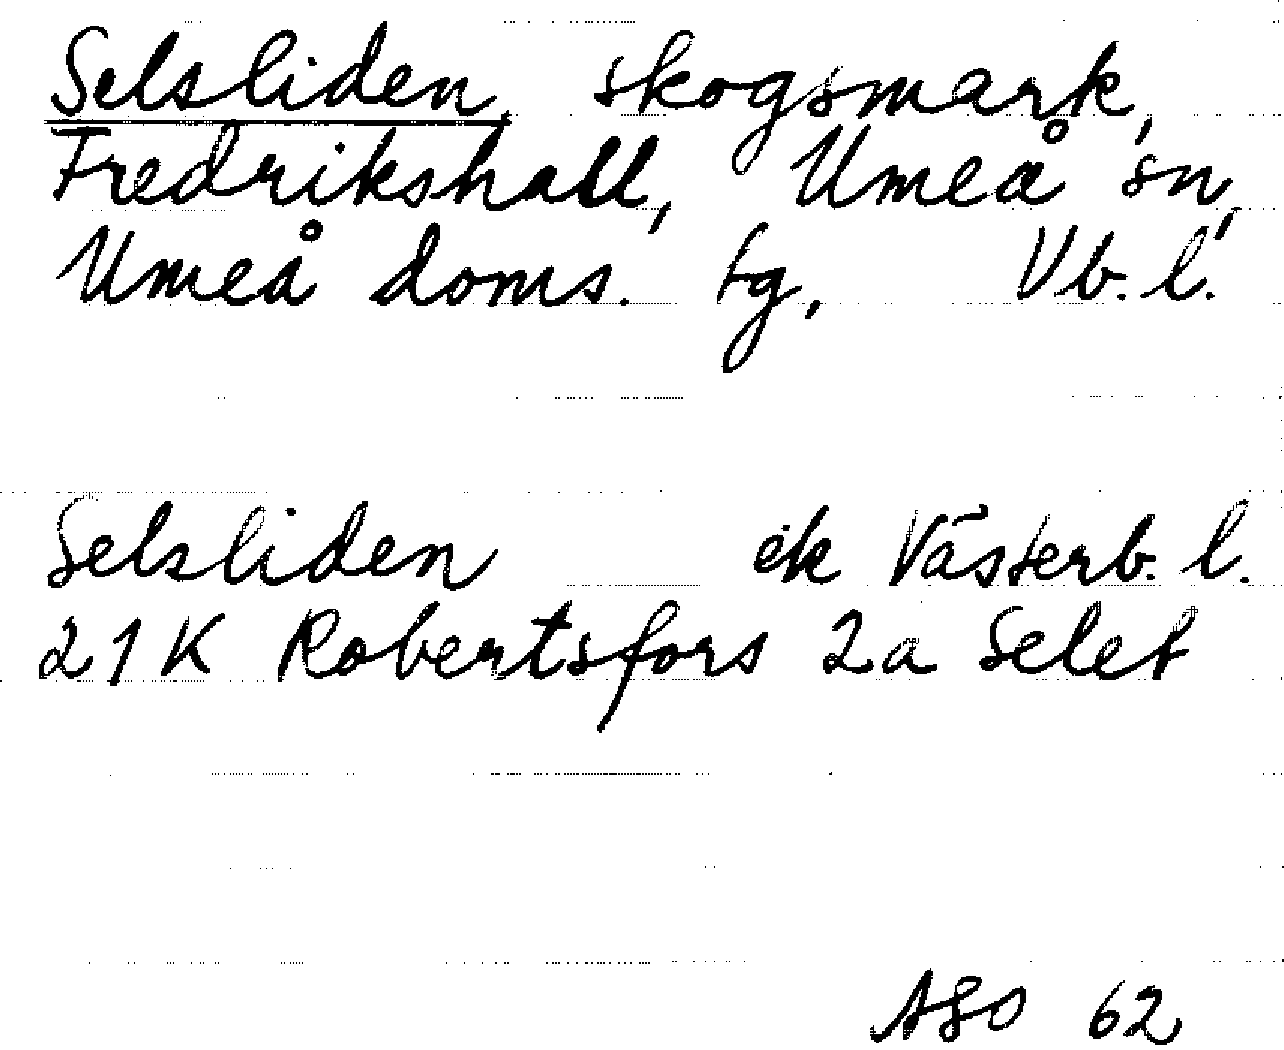 Selsliden, skogsmark,
Fredrikshall, Umeå sn,
Umeå doms. tg, Vb. l.
Selsliden ek Västerb. l.
21K Robertsfors 2a Selet
62